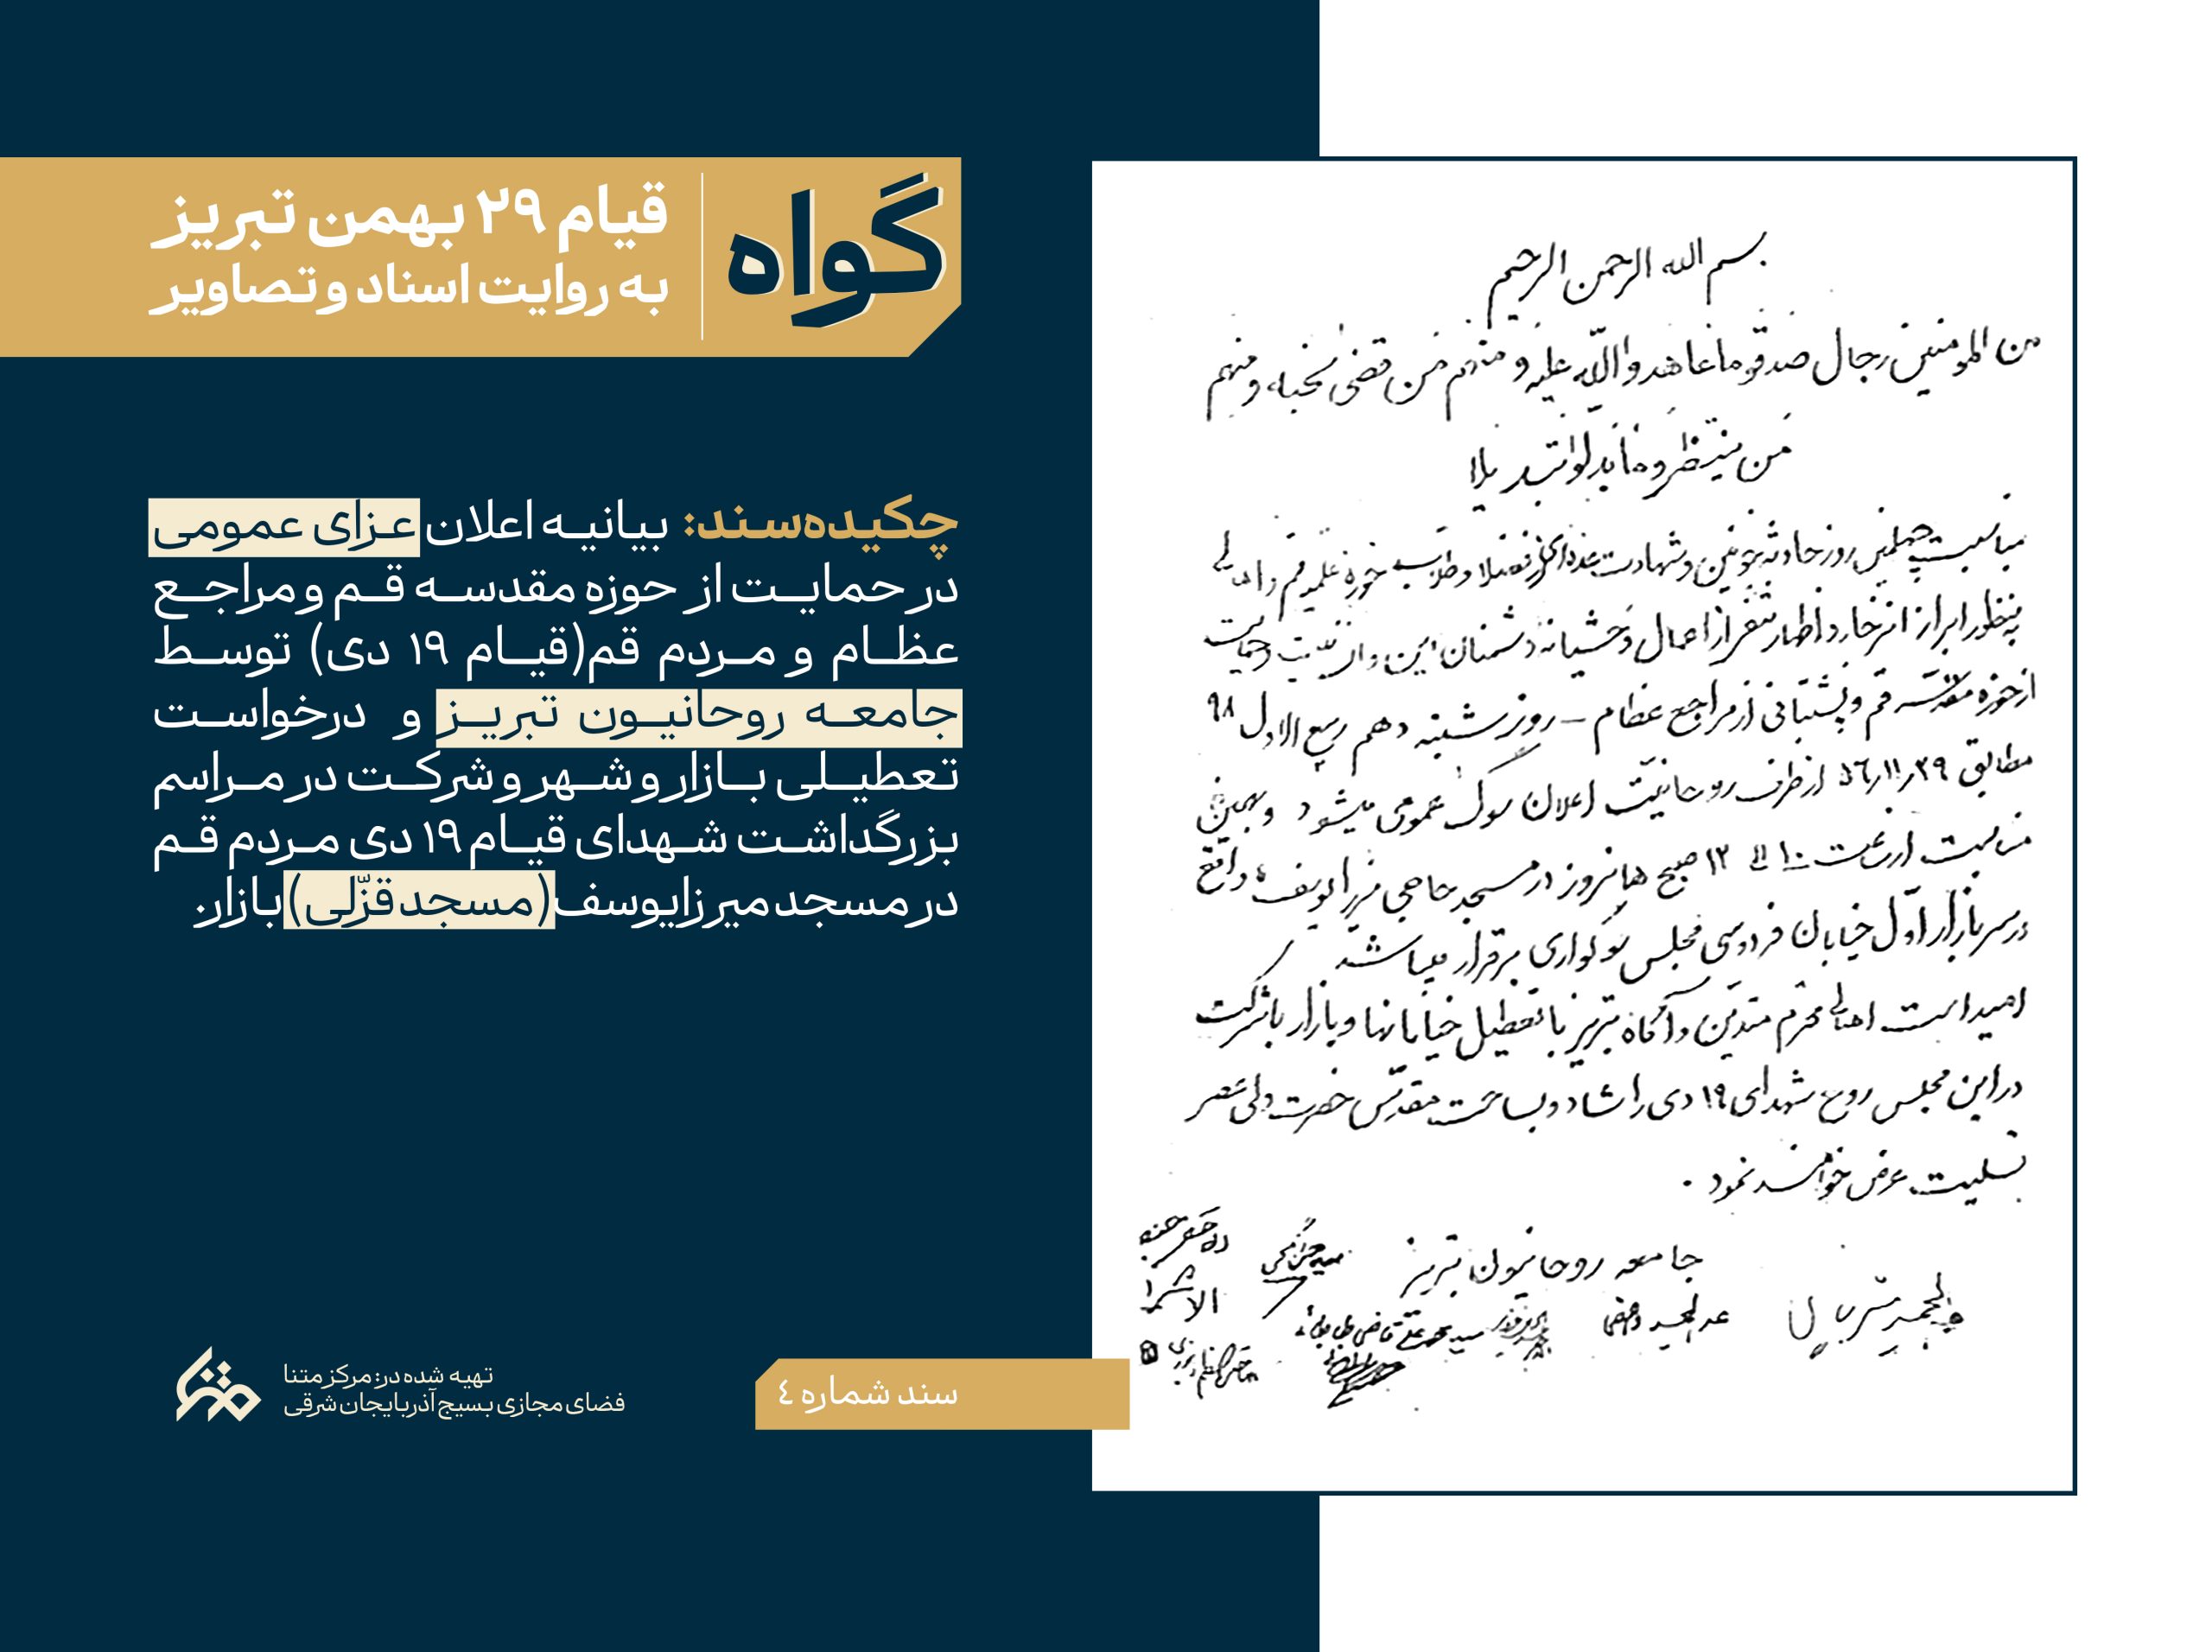 گواه
قیام ۲۹ بهمن تبریز
به روایت اسناد و تصاویر
چکیده سند: بیانیه اعلان عزای عمومی
در حمایت از حوزه مقدسه قم و مراجع
عظام و مردم قم(قیام ۱۹ دی) توسط
جامعه روحانیون تبریز و درخواست
تعطیلی بازار و شهر و شرکت در مراسم
بزرگداشت شهدای قیام ۱۹ دی مردم قم
در مسجد میرزایوسف(مسجد قزّلی) بازار.
بسم الله الرحمن الرحیم
من المومنین رجال صدقوا ما عاهدوا الله علیه و منهم من قضی نحبه و منهم
من ینتظر و ما بدلوا تبدیلا
بمناسبت چهلمین روز حادثه خونین و شهادت عده‌ای از فضلا و طلاب حوزه علمیه قم و اهالی
بمنظور ابراز انزجار و اظهار تنفر از اعمال وحشیانه دشمنان دین و انسانیت و حمایت
از حوزه مقدسه قم و پشتیبانی از مراجع عظام – روز شنبه دهم ربیع الاول ۹۸
مطابق ۵۶٫۱۱٫۲۹ از طرف روحانیت اعلان سوگ عمومی میشود و بهمین
مناسبت از ساعت ۱۰ الی ۱۲ صبح همانروز در مسجد حاجی میرزا یوسف واقع
در سر بازار اول خیابان فردوسی مجلس سوگواری برقرار میباشد
امید است اهالی محترم متدین و آگاه تبریز با تعطیل خیابانها و بازار با شرکت
در این مجلس روح شهدای ۱۹ دی را شاد و بساحت مقدس حضرت ولی عصر
تسلیت عرض خواهند نمود .
جامعه روحانیون تبریز
سید محمد علی قاضی طباطبائی
سند شماره ٤
تهیه شده در: مرکز متنا
فضای مجازی بسیج آذربایجان شرقی
متنا